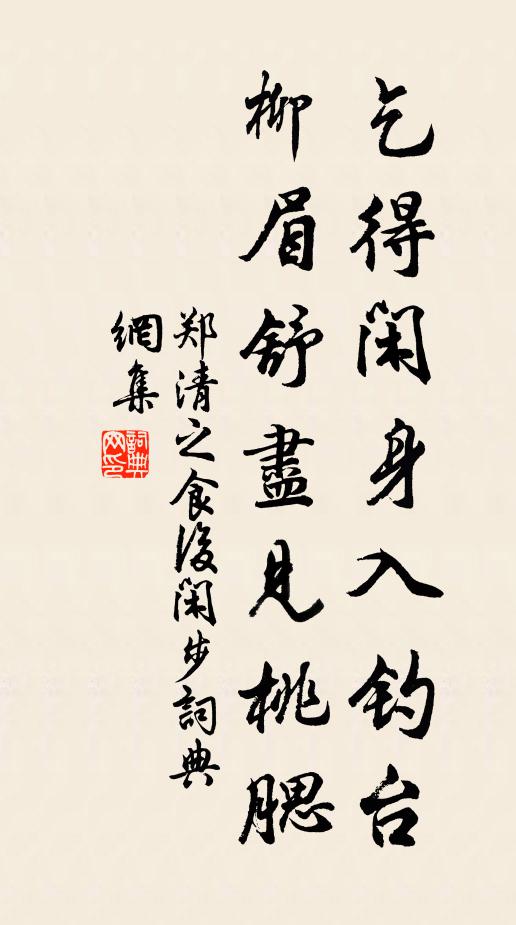 乞得闲身入钓台
柳眉舒盡見桃腮
郑清之食後闲步詞典
網集
詞典網印